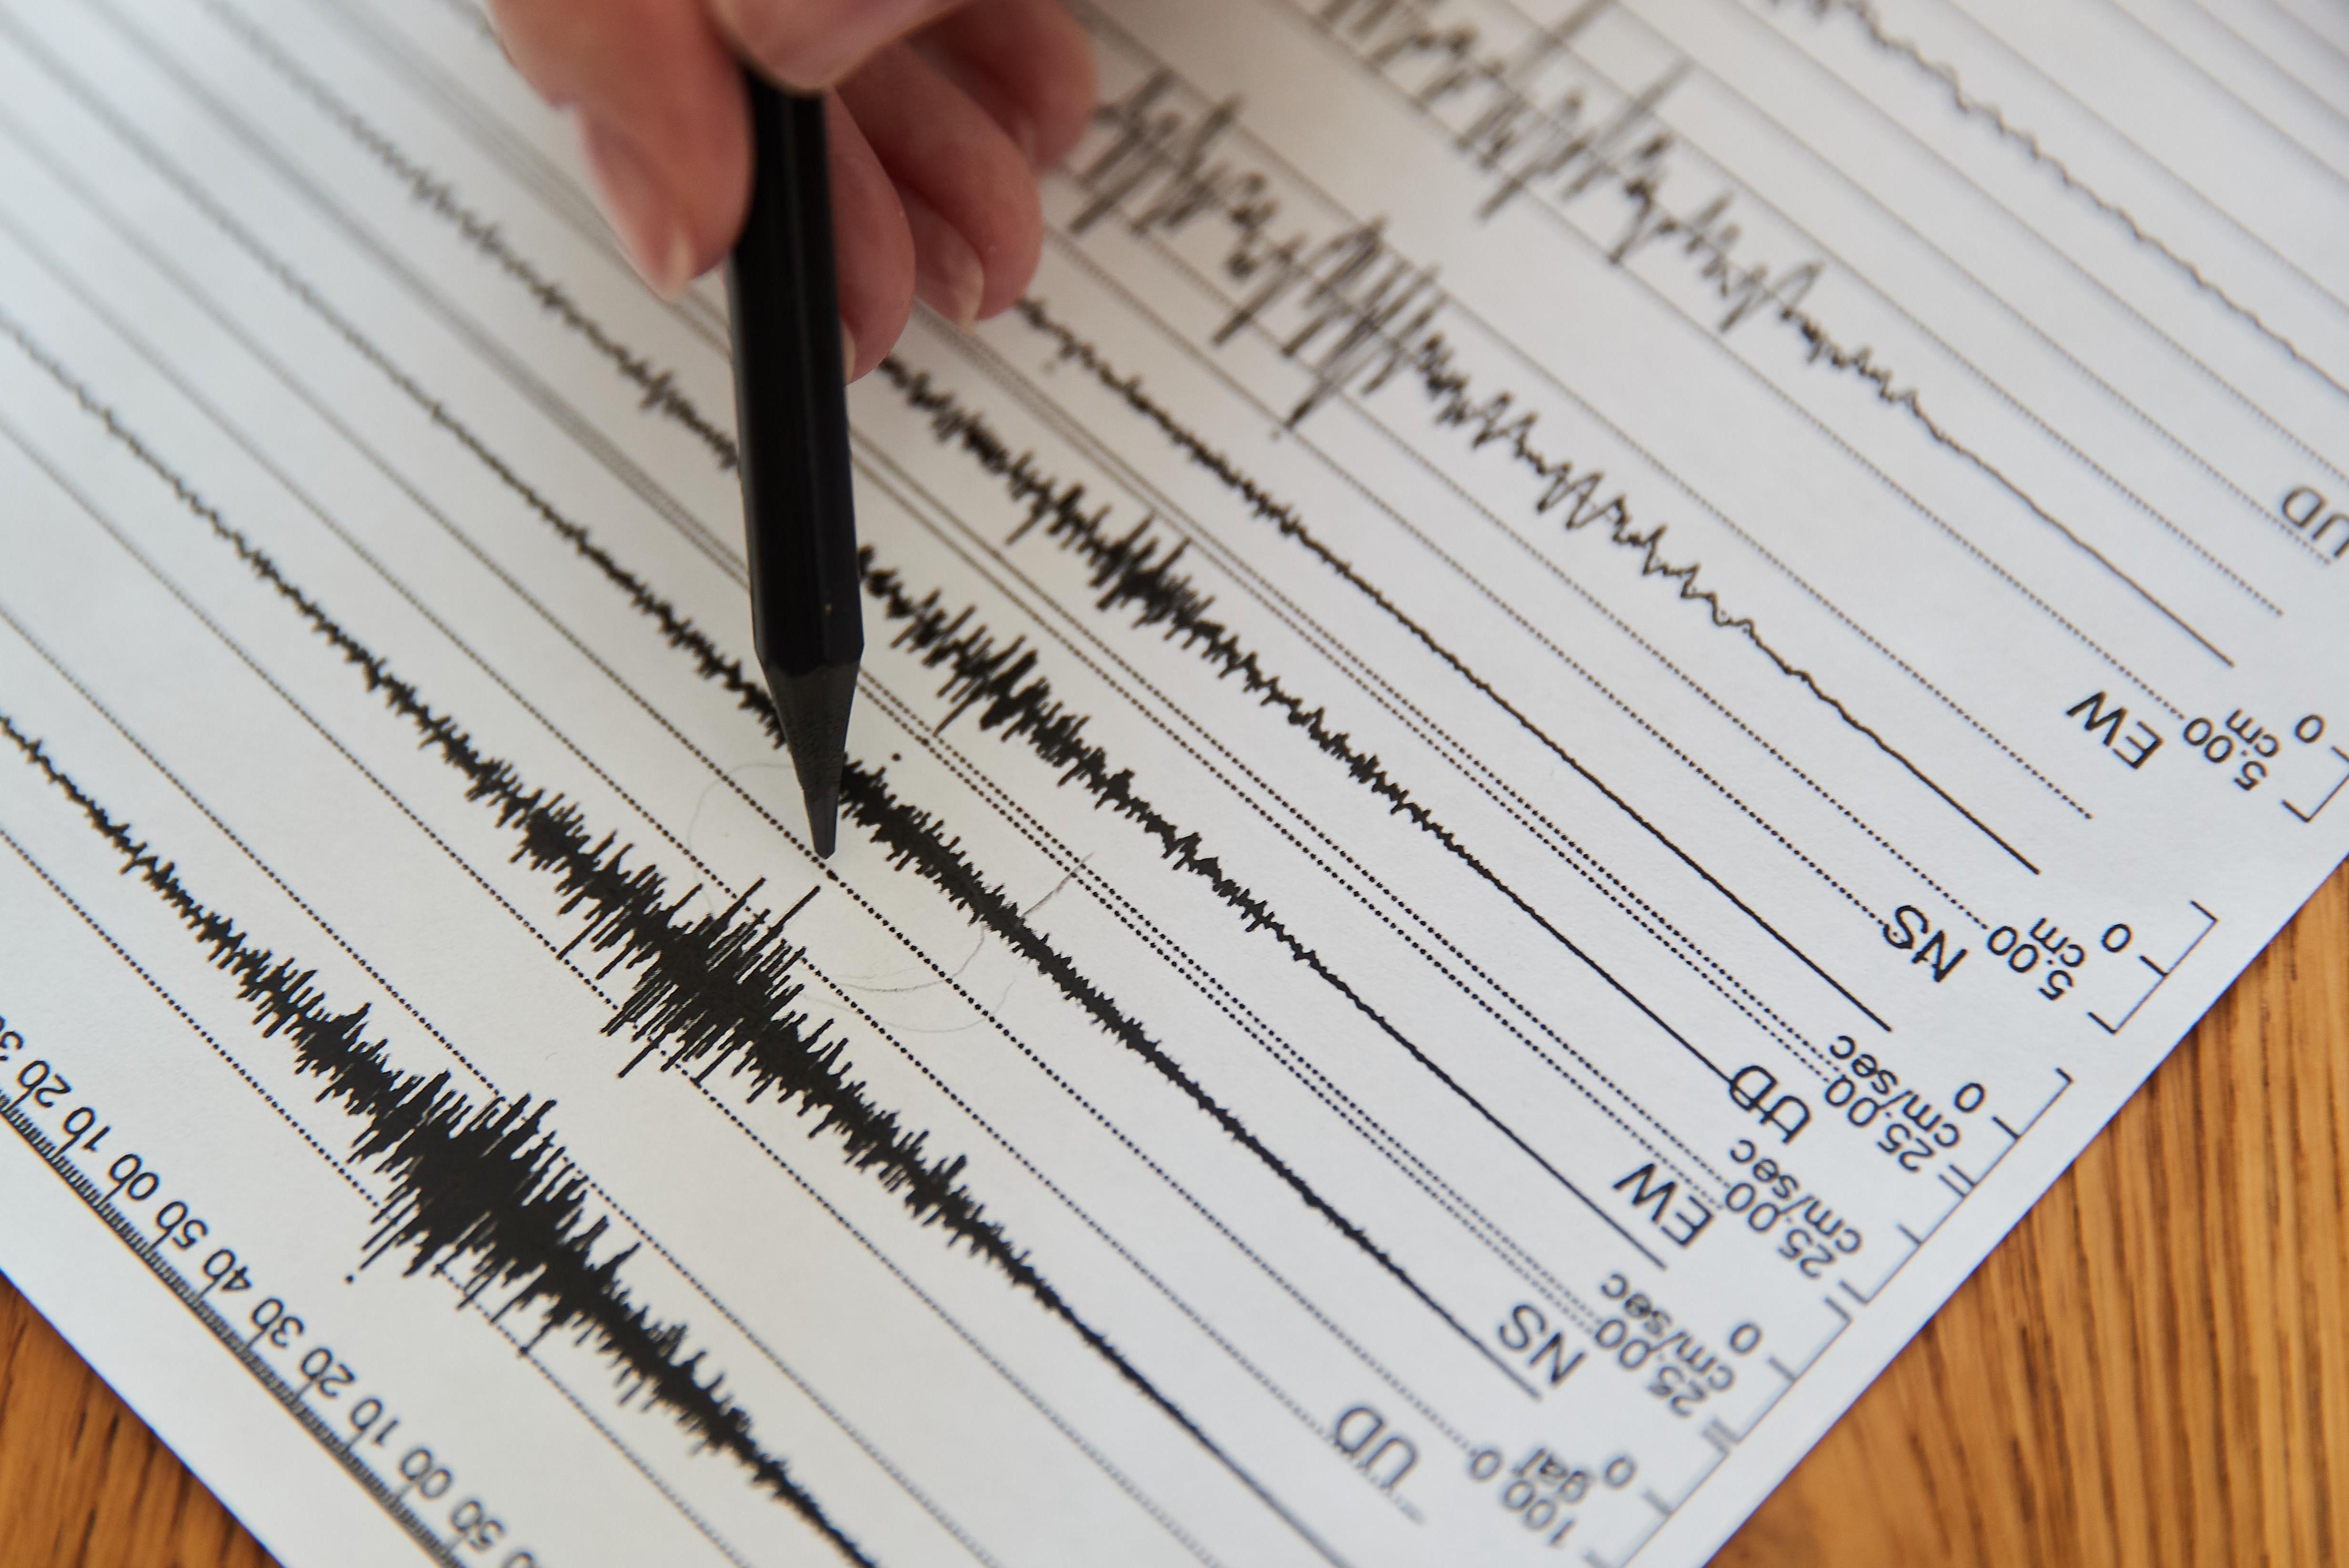 50 00 10 20 30 40 50 00 10 20
UD
100.0
gal
0
NS
25.00
cm/sec
0
EW
25.00
cm/sec
0
UD
25.00
cm/sec
0
NS
5.00
cm
0
EW
5.00
cm
0
UD